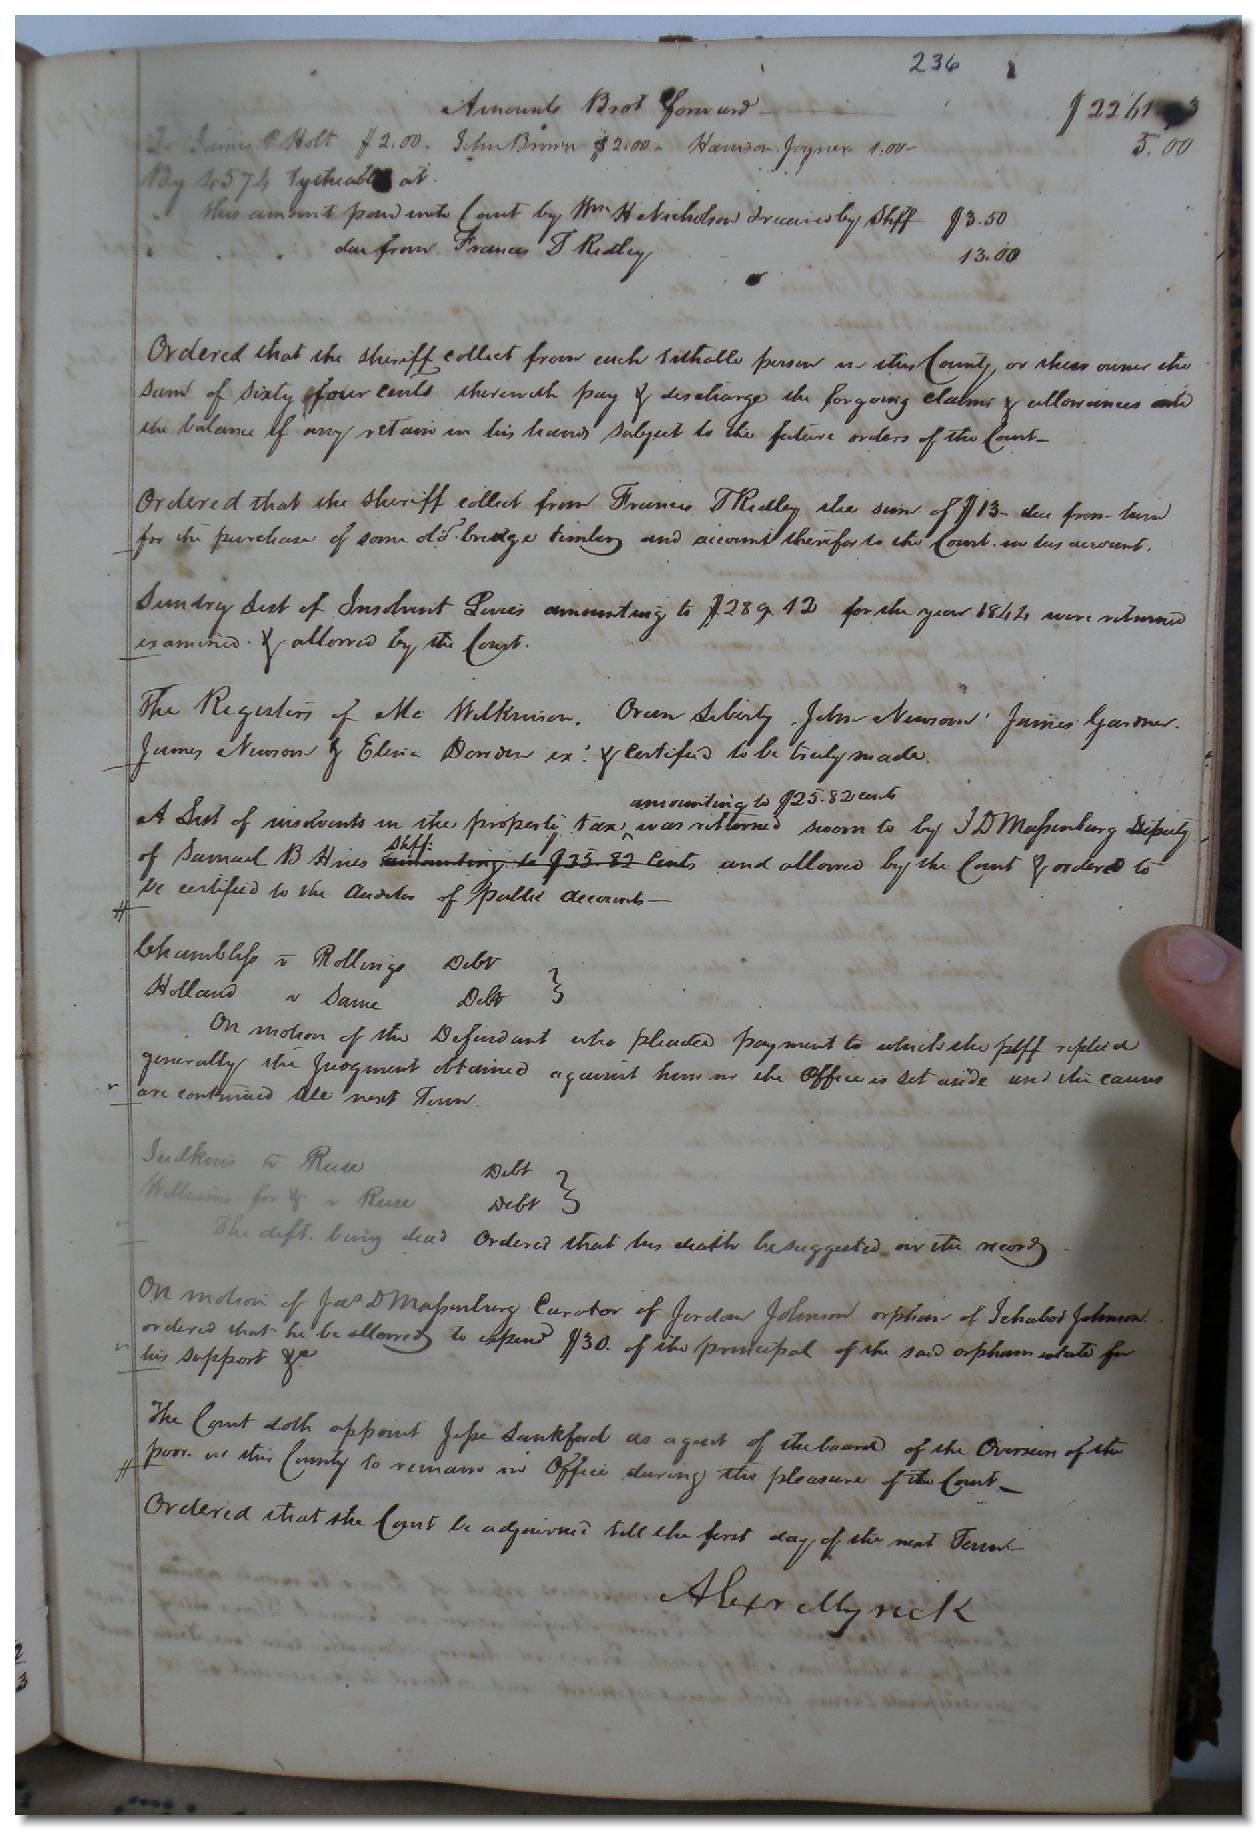 236
Amounts Brot forward
To James P Holt $2.00. John Brown $2.00 - Harrison Joyner 1.00- 5.00
By 4574 Tytheables at
" this amount paid into Court by Wm H Nicholson & received by Shff $3.50
" " " due from Francis T Ridley 13.00
Ordered that the sheriff collect from each tithable person in this County or their owner the
sum of sixty four cents therewith pay & discharge the forgoing claims & allowances and
the balance if any retain in his hands subject to the future orders of the Court-
Ordered that the sheriff collect from Francis T Ridley the sum of $13- due from him
for the purchase of some old bridge timber and account therefor to the Court in his account.
Sundry List of Insolvent Levies amounting to $289.12 for the year 1844 were returned
examined & allowed by the Court.
The Registers of Mc Wilkinson. Oren Liberty John Newsom James Garner.
James Newsom & Eliza Bowden ex: & certified to be truly made.
amounting to $25.82 cents
A List of insolvents in the property tax ^ was returned sworn to by J D Massenburg Deputy
of Samuel B Hines Shff: amounting to $25.82 Cents and allowed by the Court & ordered to
be certified to the Auditor of public accounts-
Chambliss v Rollings Debt
Holland v Same Debt
On motion of the Defendant who pleaded payment to which the plff replied
generally the Judgment obtained against him in the Office is set aside and the causes
are continued till next Term.
Judkins v Ruse Debt
Williams for & v Ruse Debt
The deft. being dead Ordered that his death be suggested on the record
On motion of Jas D Massenburg Curator of Jordan Johnson orphan of Ichabod Johnson
ordered that he be allowed to expend $30. of the principal of the said orphans estate for
his support &c
The Court doth appoint Jesse Lankford as agent of the board of the Overseers of the
poor in this County to remain in Office during the pleasure of the Court-
Ordered that the Court be adjourned till the first day of the next Term-
Alexr Myrick